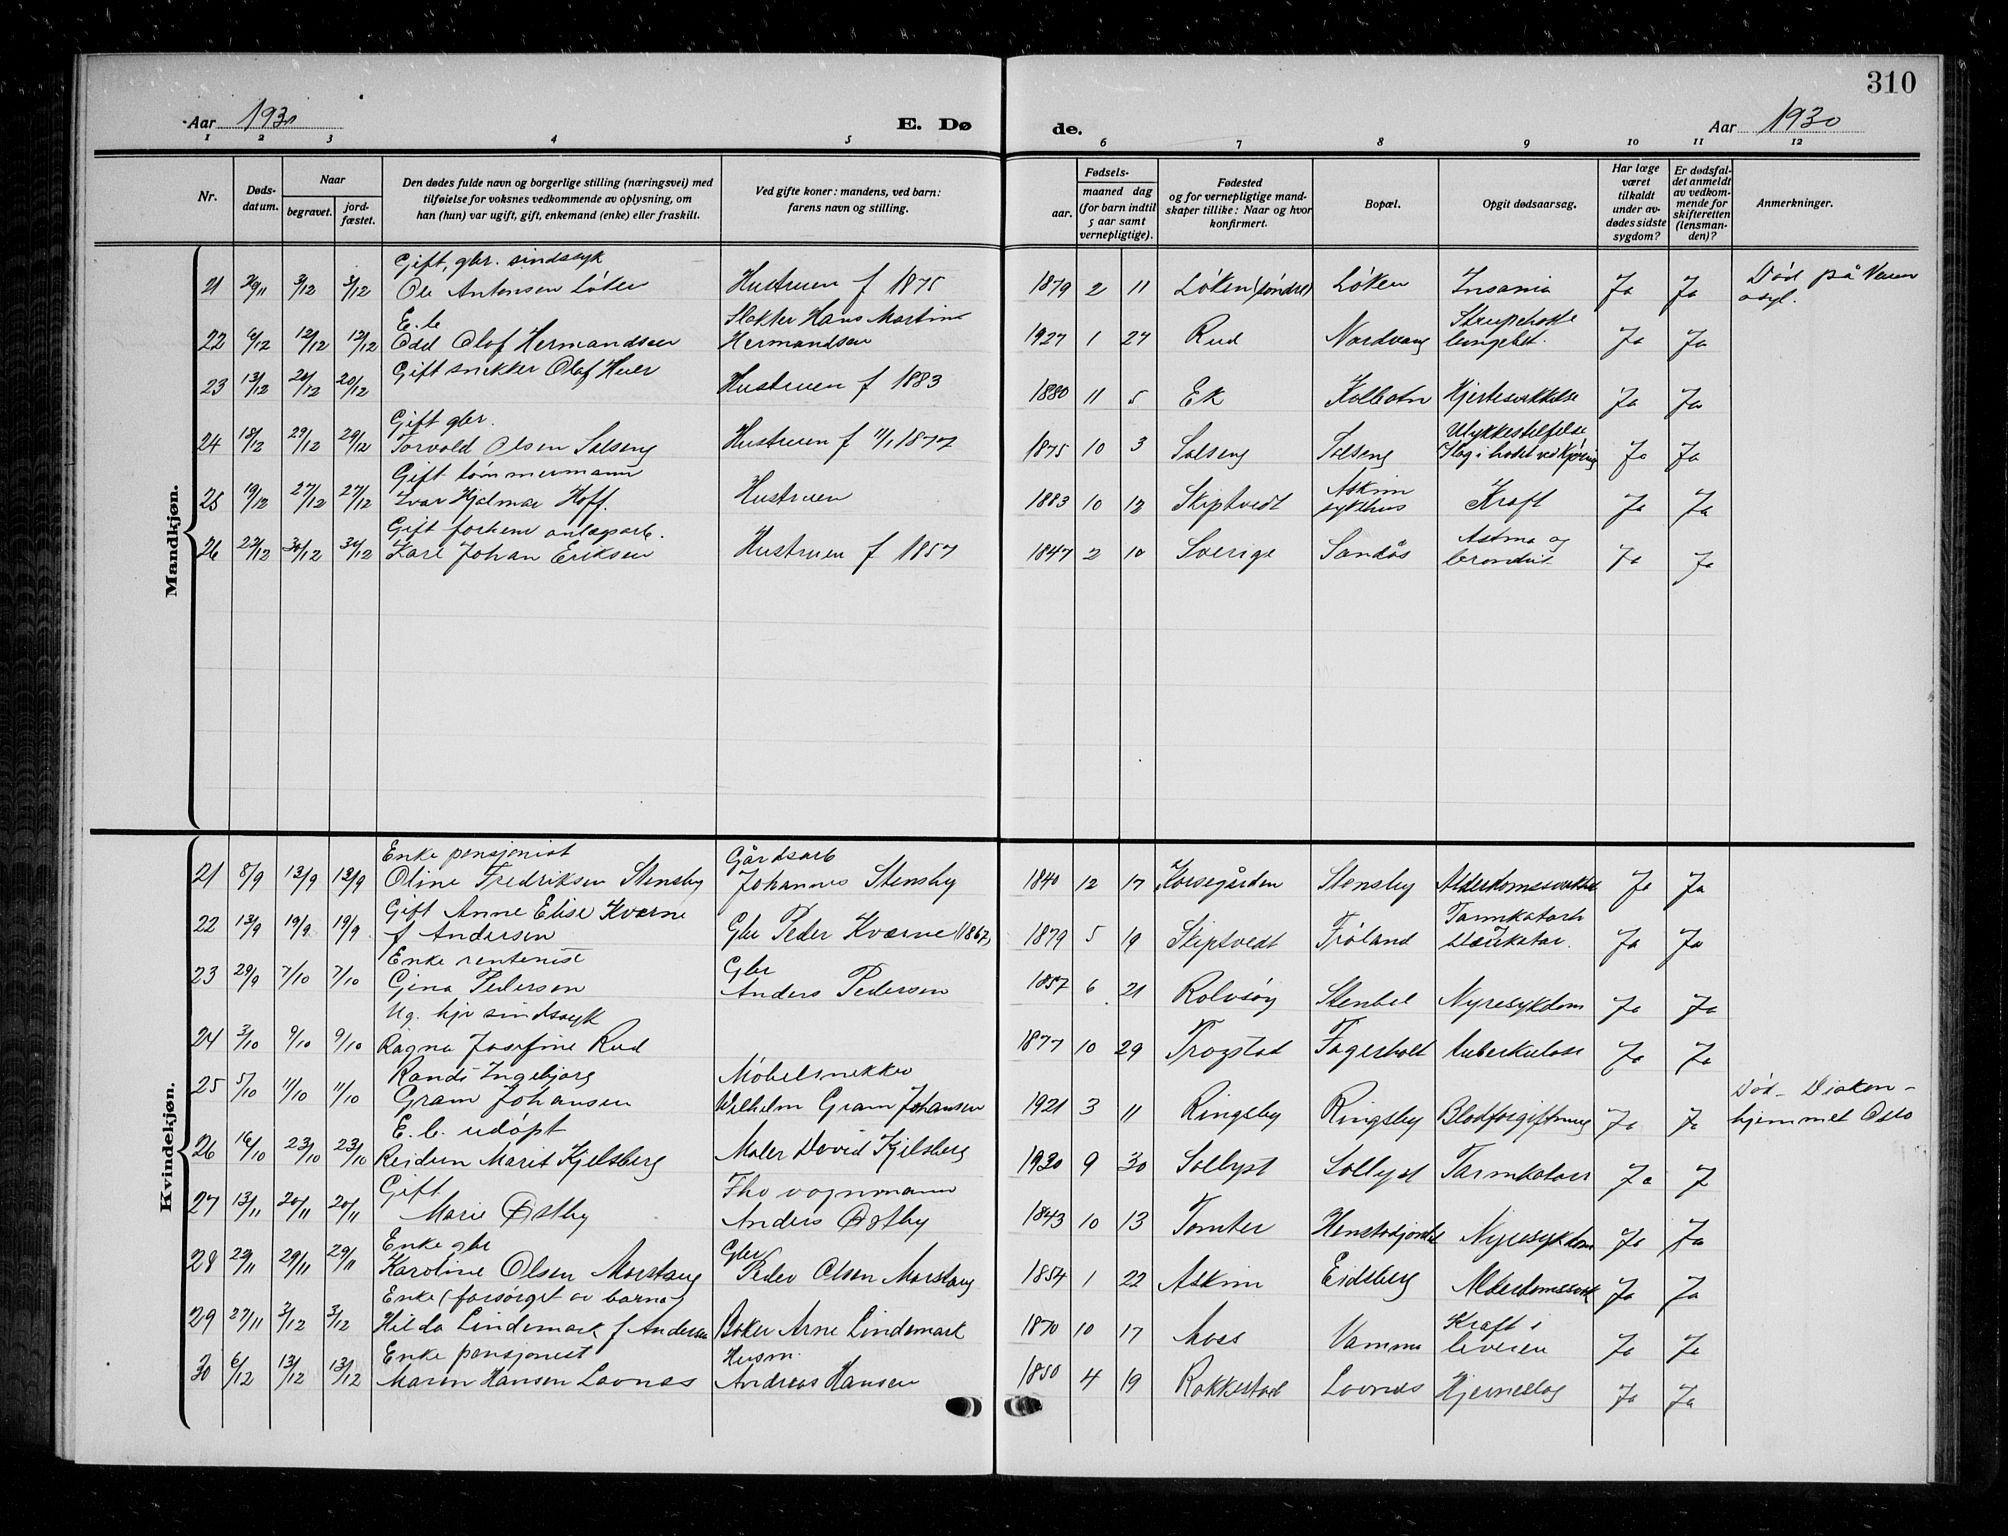 310
Aar 1930 E. Døde. Aar 1930
1 2 3 4 5 6 7 8 9 10 11 12
Nr.
Døds-
datum.
Naar
begravet.
jord-
fæstet.
Den dødes fulde navn og borgerlige stilling (næringsvei) med
tilføielse for voksnes vedkommende av oplysning, om
han (hun) var ugift, gift, enkemand (enke) eller fraskilt.
Ved gifte koner: mandens, ved barn:
farens navn og stilling.
Fødsels-
aar.
maaned dag
(for barn indtil
5 aar samt
vernepligtige).
Fødested
og for vernepligtige mand-
skaper tillike: Naar og hvor
konfirmert.
Bopæl.
Opgit dødsaarsag.
Har læge
været
tilkaldt
under av-
dødes sidste
sygdom?
Er dødsfal-
det anmeldt
av vedkom-
mende for
skifteretten
(lensman-
den)?
Anmerkninger.
Mandkjøn.
Gift, gbr. sindssyk
21 30/11 3/12 3/12 Ole Antonsen Løken Hustruen f 1875 1879 2 11 Løken (søndre) Løken Insania Ja Ja Død på
asyl.
E. b. Slakter Hans Martin Strupehoste
22 6/12 12/12 12/12 Odd Olof Hermandsen Hermandsen 1927 1 24 Rud Nordvang lungebet. Ja Ja
23 13/12 20/12 20/12 Gift snikker Olaf Huer Hustruen f 1883 1880 11 5 Ek Kolbotn Hjertesvekkelse Ja Ja
Gift gbr. Ulykkestilfelde
24 18/12 29/12 29/12 Torvald Olsen Solseng Hustruen f 11/1 1877 1875 10 3 Solseng Solseng Slag i hodet ved Kjøring Ja Ja
Gift tømmermann Askim
25 19/12 27/12 27/12 Ivar Hjalmar Hoff. Hustruen 1883 10 12 Skiptvedt sykehus Kræft Ja Ja
Gift forhenv anlægsarb. Astma og
26 22/12 30/12 30/12 Karl Johan Eriksen Hustruen f 1857 1847 2 10 Sverige Sandås bronchit Ja Ja
Kvindekjøn.
Enke pensjonist Gårdsarb
21 8/9 13/9 13/9 Oline Fredriksen Stensby Johannes Stensby 1840 12 17 Korsegården Stensby Alderdomssvekk Ja Ja
Gift Anne Elise Kværne Tarmkatarh
22 13/9 19/9 19/9 f Andersen Gbr Peder Kværne (1867) 1879 5 19 Skiptvedt Frøland Ja Ja
Enke rentenist Gbr
23 29/9 7/10 7/10 Gina Pedersen Anders Pedersen 1857 6 21 Rolvsøy Stenbel Nyresykdom Ja Ja
Ug. hjv sindssyk
24 3/10 9/10 9/10 Ragna Josefine Rud 1877 10 29 Trøgstad Fagerholt tuberkulose Ja Ja
Randi Ingebjørg Møbelsnekker Død Diakon-
25 5/10 11/10 11/10 Gram Johansen Wilhelm Gram Johansen 1921 3 11 Ringsby Ringsby Blodforgiftning Ja Ja hjemmet Oslo
E. b. udøpt
26 16/10 23/10 23/10 Reidun Marit Kjelsberg Maler David Kjelsberg 1930 9 30 Solbyst Solbyst Tarmkatarr Ja J
Gift Fhv vognmann
27 13/11 20/11 20/11 Marie Østby Anders Østby 1843 10 13 Tomter Nyresykdom Ja Ja
Enke gbr Gbr
28 22/11 29/11 29/11 Karoline Olsen Morstang Peder Olsen Morstang 1854 1 22 Askim Eidsberg Alderdomssvek Ja Ja
Enke (forsørget av barna) Kræft i
29 27/11 3/12 3/12 Hilda Lindemark f Andersen Baker Arne Lindemark 1870 10 17 Moss Vamma leveren Ja Ja
Enke pensjonist Husm.
30 6/12 13/12 13/12 Maren Hansen Lovnæs Andreas Hansen 1850 4 19 Rakkestad Lovnæs Hjerneslag Ja Ja